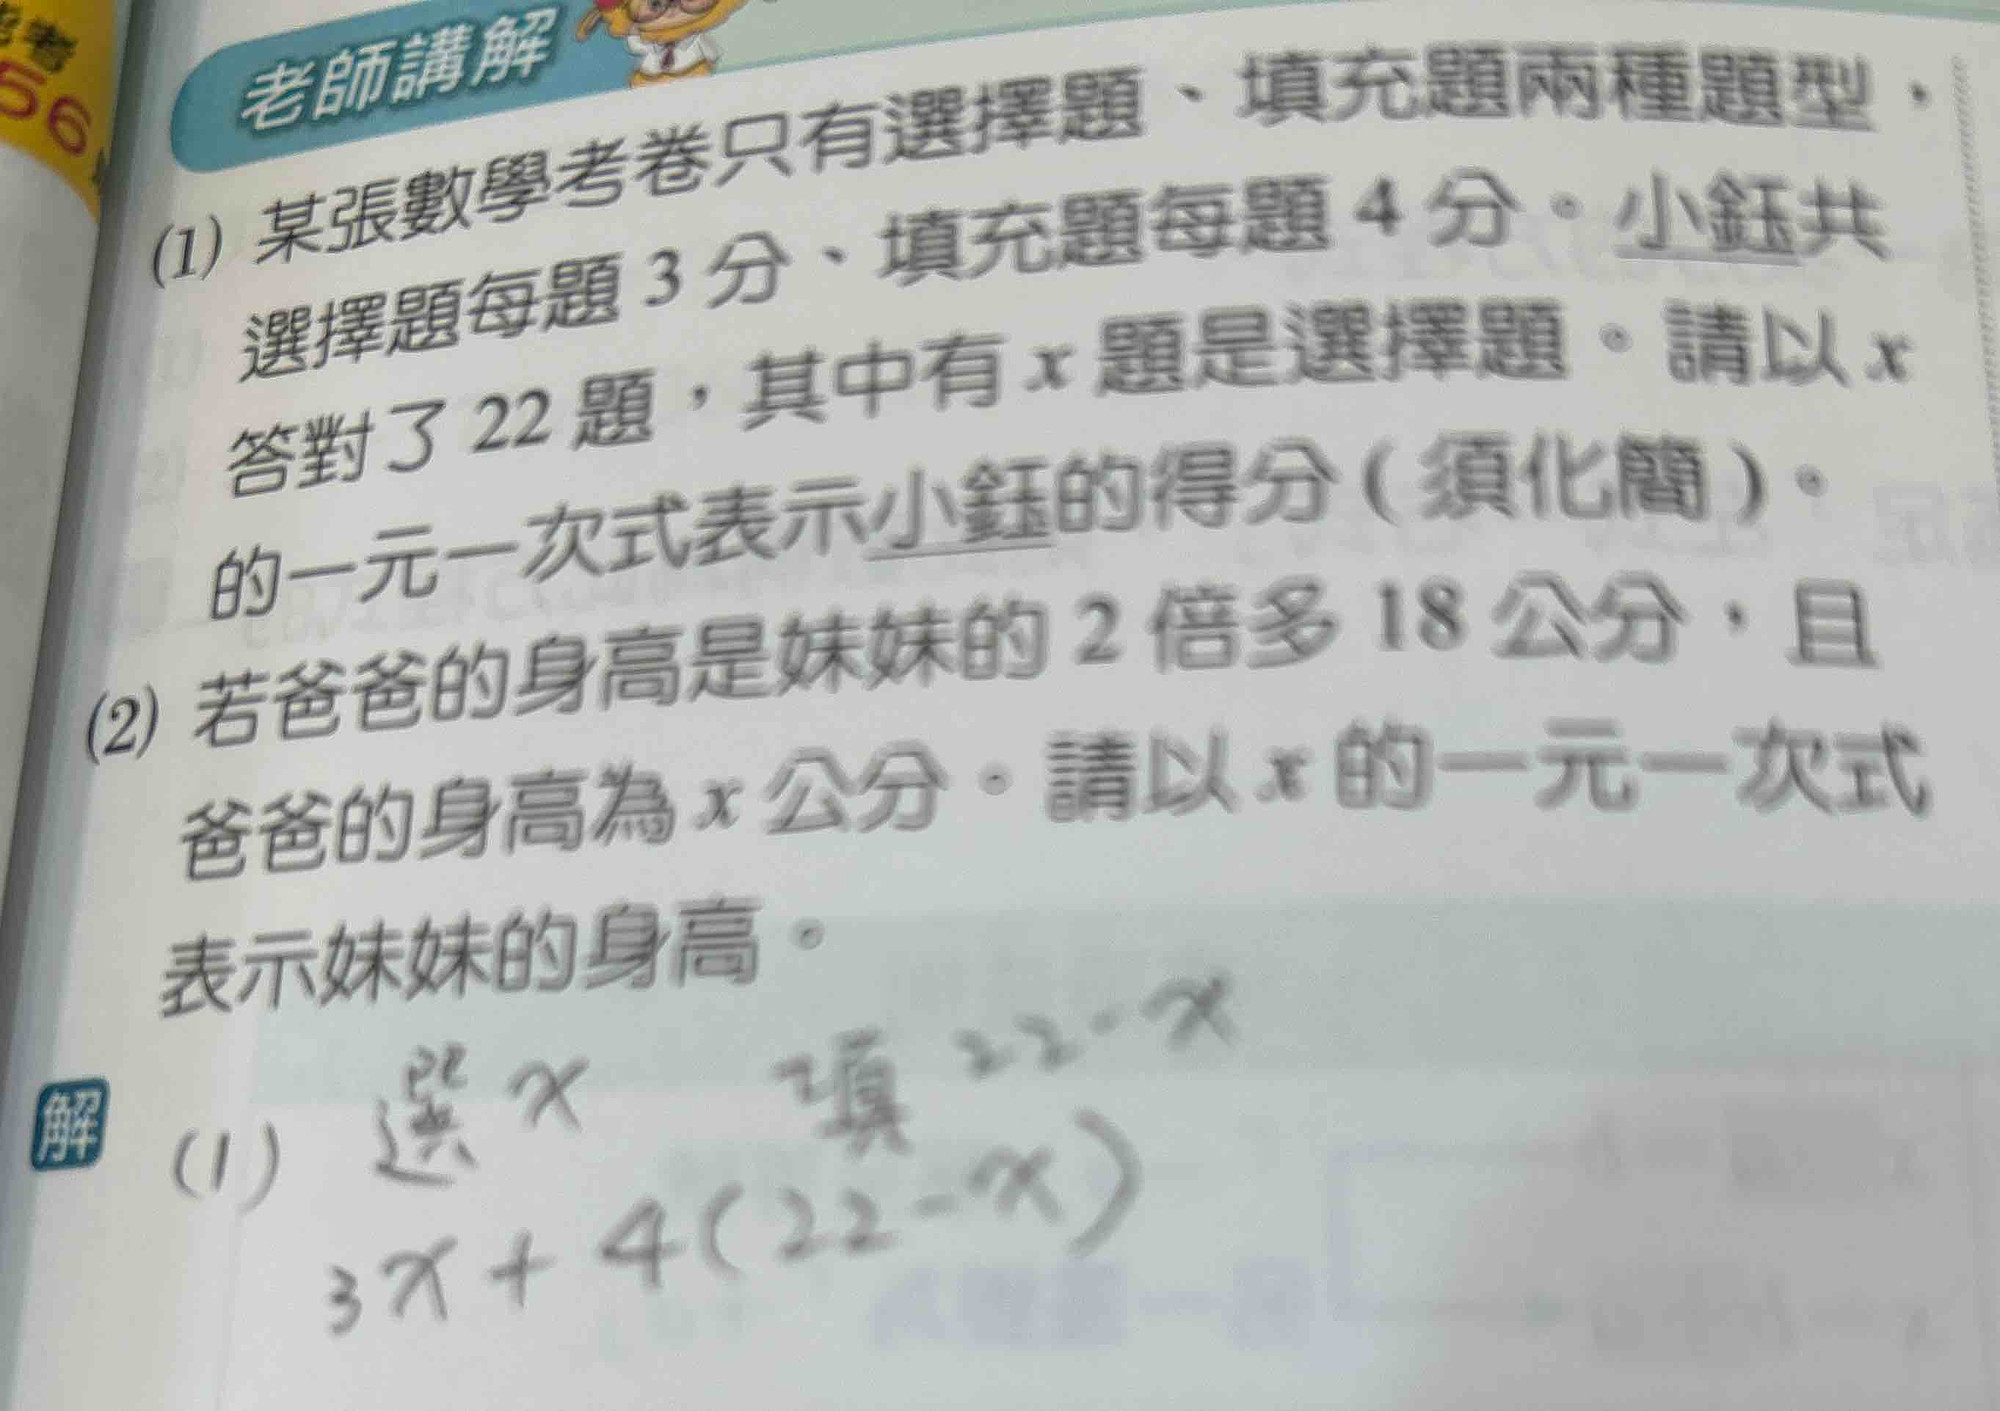 56
老師講解
(1) 某張數學考卷只有選擇題、填充題兩種題型，
選擇題每題 3 分、填充題每題 4 分。小鈺共
答對了 22 題，其中有 x 題是選擇題。請以 x
的一元一次式表示小鈺的得分（須化簡）。
(2) 若爸爸的身高是妹妹的 2 倍多 18 公分，且
爸爸的身高為 x 公分。請以 x 的一元一次式
表示妹妹的身高。
解
(1) 選 x 填 22-x
3x+4(22-x)